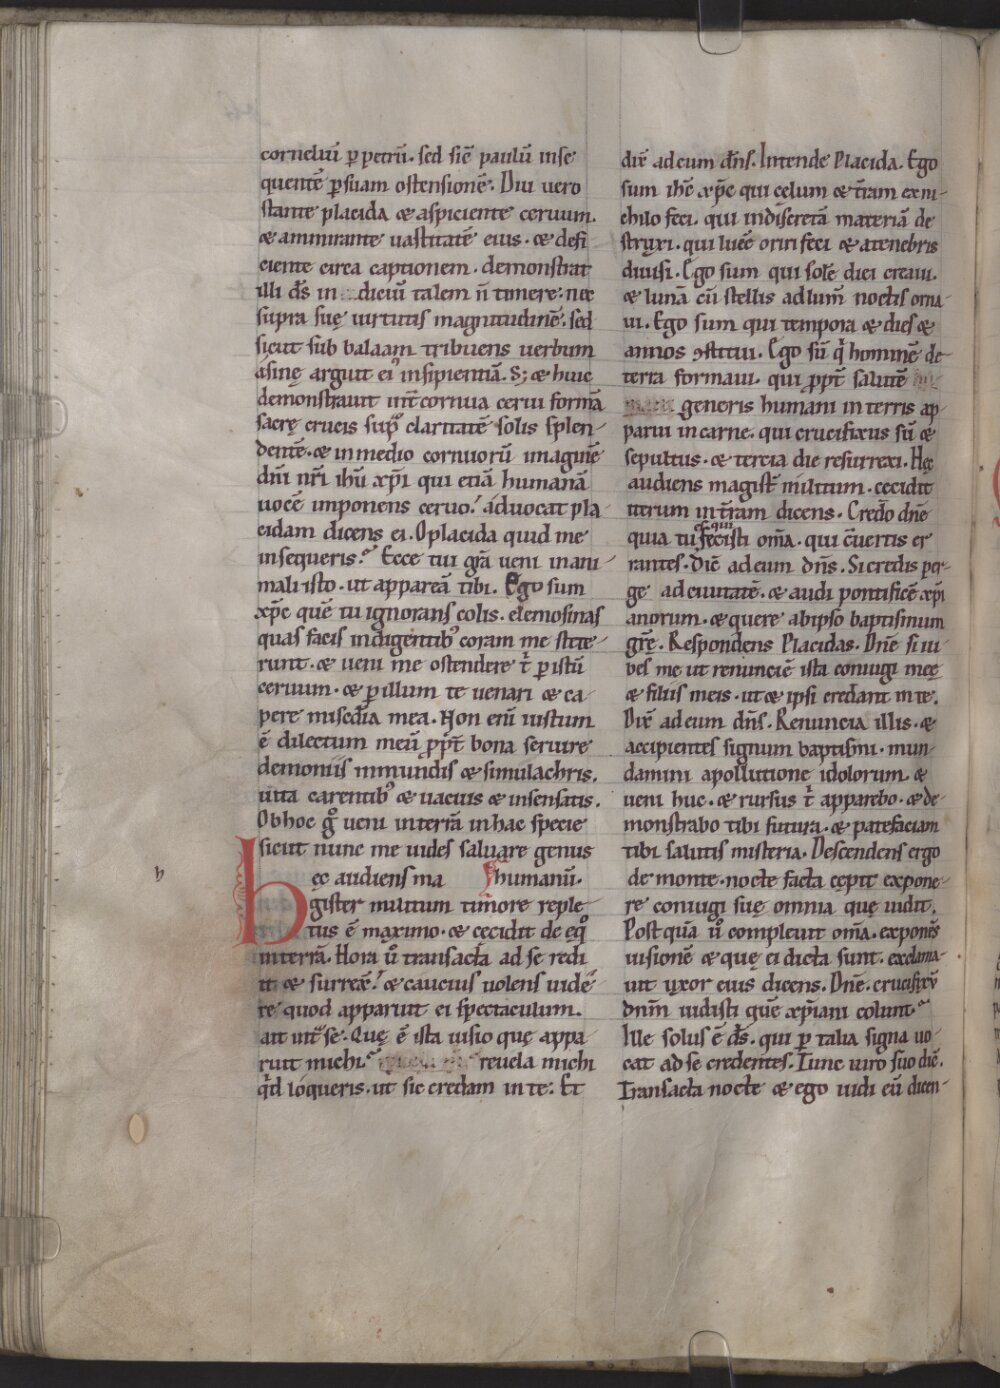 corneliū ꝑ petrū. sed siē paulū inse
quentē ꝑ suam ostensionē. Diu uero
stante placida & aspiciente ceruum.
& ammirante uastitatē eius. & defi
ciente circa captionem. demonstrat
illi d̄s in diciū talem n̄ timere. nec
supra suę uirtutis magnitudinē. sed
sicut sub balaam tribuens uerbum
asinę arguit ei᷒ insipientiā. S; & huic
demonstrauit int̄ cornua cerui formā
sacrę crucis sup̄ claritatē solis splen-
dentē. & in medio cornuorū imaginē
dn̄i nr̄i ih̄u xp̄i qui etiā humanā
uocē imponens ceruo. aduocat pla-
cidam dicens ei. O placida quid me
insequeris? Ecce tui gr̄a ueni in ani-
mali isto. ut appareā tibi. Ego sum
xp̄c quē tu ignorans colis. elemosinas
quas facis indigentib᷒ coram me stete-
runt. & ueni me ostendere t̄ ꝑ istū
ceruum. & ꝑ illum te uenari & ca-
pere misedīa mea. Non enī iustum
ē dilectum meū ꝓpt̄ bona seruire
demoniis inmundis & simulachris.
uita carentib᷒ & uacuis & insensatis.
Ob hoc gͦ ueni in terrā in hac specie
sicut nunc me uides saluare genus
hęc audiens ma humanū.
gister militum timore reple-
tus ē maximo. & cecidit de eqͦ
in terrā. Hora ū transacta ad se redi
it & surrex̄. & caucius uolens uidē-
re quod apparuit ei spectaculum.
ait int̄ se. Quę ē ista uisio quę appa-
ruit michi? reuela michi
qd̄ loqueris. ut sic credam in te. Et
dix̄ ad eum dn̄s. Intende Placida. Ego
sum ih̄c xp̄c qui cęlum & t̄ram ex ni-
chilo feci. qui indiscretā materiā de-
struxi. qui lucē oriri feci & a tenebris
diuisi. Ego sum qui solē diei creaui.
& lunā cū stellis ad lum̄ noctis orna-
ui. Ego sum qui tempora & dies &
annos ꝯstitui. Ego sū q̄ hominē de
terra formaui. qui ꝓpt̄ salutē
generis humani in terris ap-
parui in carne. qui crucifixus sū &
sepultus. & tercia die resurrexi. Hęc
audiens magist̄ militum. cecidit
iterum in t̄ram dicens. Credo dn̄e
quia tu es qui fecisti om̄a. qui c̄uertis er
rantes. Dix̄ ad eum dn̄s. Si credis per-
ge ad ciuitatē. & audi pontificē xp̄i
anorum. & quere ab ipso baptismum
gr̄e. Respondens Placidas. Dn̄e si iu
bes me ut renunciē ista coniugi meę
& filiis meis. ut & ipsi credant in te.
Dix̄ ad eum dn̄s. Renuncia illis. &
accipientes signum baptismi. mun-
damini a pollutione idolorum. &
ueni huc. & rursus t̄ apparebo. & de-
monstrabo tibi futura. & patefaciam
tibi salutis misteria. Descendens ergo
de monte. nocte facta cępit expone-
re coniugi suę omnia quę uidit.
Post quā ū compleuit om̄a. exponēs
uisionē & quę ei dicta sunt. exclama-
uit uxor eius dicens. Dn̄e. crucifixū
dnm̄ uidisti quē xp̄iani colunt?
Ille solus ē d̄s. qui ꝑ talia signa uo-
cat ad se credentes. Tunc uiro suo dix̄.
Transacta nocte & ego uidi eū dicen-
h